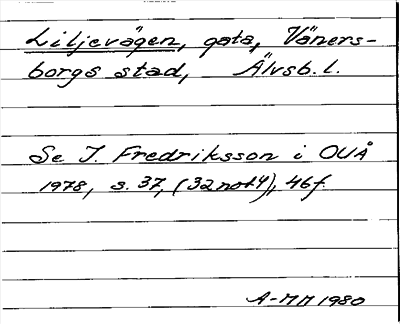 Liljevägen, gata, Väners-
borgs stad, Älvsb. l.
Se I. Fredriksson i OUÅ
1978, s. 37, (32 not 4), 46 f.
A-MM 1980